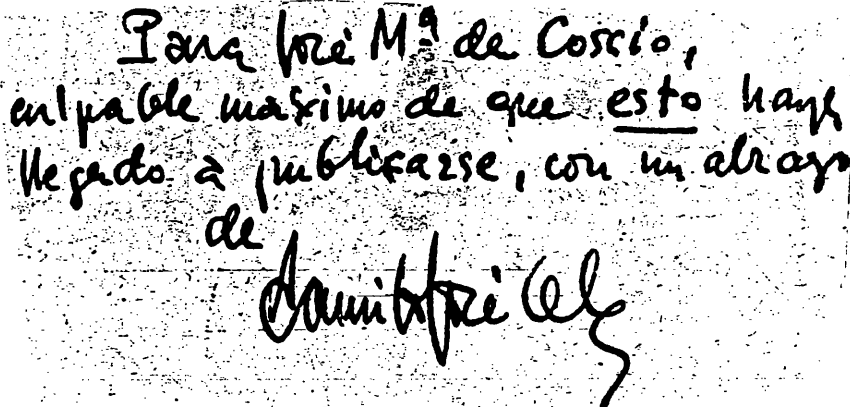 Para José Mª de Cossío,
culpable máximo de que esto haya
llegado à publicarse, con un abrazo
de
Camilo José Cela